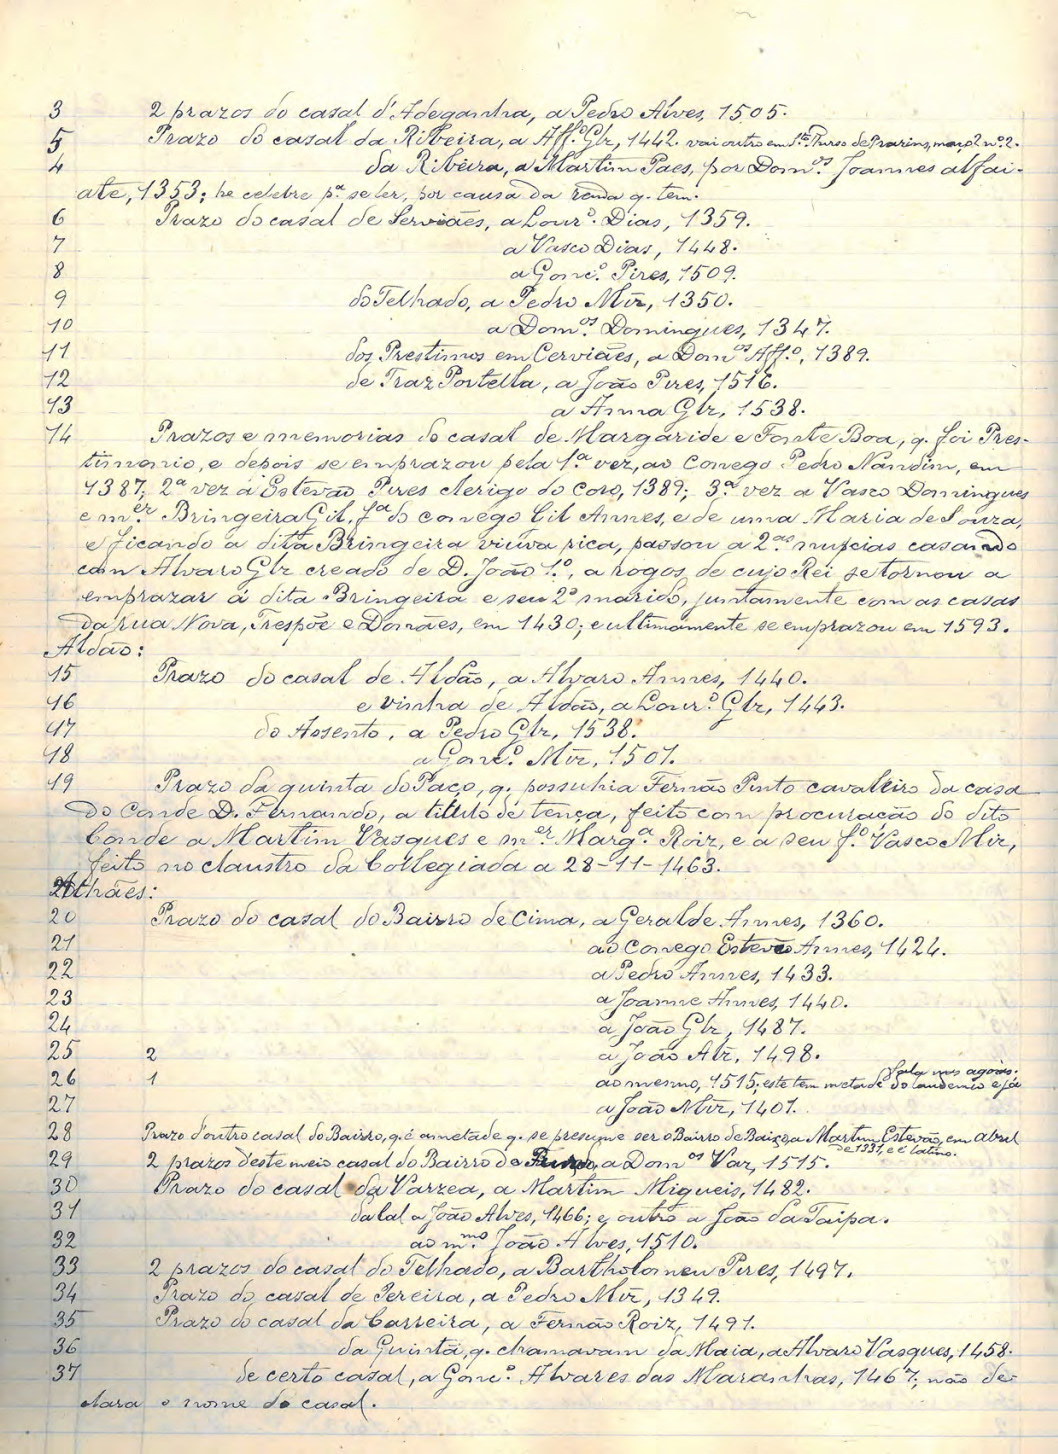 3 2 prazos do casal d'Adeganha, a Pedro Alves, 1505.
5 Prazo do casal da Ribeira, a Aff.º Glz, 1442. vai outro em S.to Thirso de Prazins, maço 2 nº 2.
4 da Ribeira, a Martim Paes, por Dom.os Joannes alfai-
ate, 1353; he celebre p.ª se ler, por causa da renda q. tem.
6 Prazo do casal de Serviães, a Lour.º Dias, 1359.
7 a Vasco Dias, 1448.
8 a Gonc.º Pires, 1509.
9 do Telhado, a Pedro Miz, 1350.
10 a Dom.os Domingues, 1347.
11 dos Prestimos em Cerviães, a Dom.os Aff.º, 1389.
12 de Traz Portella, a João Pires, 1516.
13 a Anna Glz, 1538.
14 Prazos e memorias do casal de Margaride e Fonte Boa, q. foi Pres-
timonio, e depois se emprazou pela 1.ª vez, ao Conego Pedro Nandim, em
1387; 2ª vez a Estevão Pires clerigo do coro, 1389; 3.ª vez a Vasco Domingues
e m.er Bringeira Gil, f.ª do conego Gil Annes, e de uma Maria de Souza,
e ficando a dita Bringeira viuva rica, passou a 2.as nupcias casando
com Alvaro Glz creado de D. João 1.º, a rogos de cujo Rei se tornou a
emprazar á dita Bringeira e seu 2º marido, juntamente com as casas
da rua Nova, Trespõe e Donães, em 1430; e ultimamente se emprazou em 1593.
Aldão:
15 Prazo do casal de Aldão, a Alvaro Annes, 1440.
16 e vinha de Aldão, a Lour.º Glz, 1443.
17 do Assento, a Pedro Glz, 1538.
18 a Gonc.º Miz, 1501.
19 Prazo da quinta do Paço, q. possuhia Fernão Pinto cavaleiro da casa
do Conde D. Fernando, a titulo de tença, feito com procuração do dito
Conde a Martim Vasques e m.er Marg.ª Roiz, e a seu f.º Vasco Miz,
feito no claustro da Collegiada a 28-11-1463.
Athães:
20 Prazo do casal do Bairro de Cima, a Geralde Annes, 1360.
21 ao Conego Estevão Annes, 1424.
22 a Pedro Annes, 1433.
23 a Joanne Annes, 1440.
24 a João Glz, 1487.
25 2 a João Alz, 1498.
26 1 ao mesmo, 1515; este tem metade do laudemio e já
27 a João Miz, 1401.
28 Prazo d'outro casal do Bairro, q. é ametade q. se presume ser o Bairro de Baixo, a Martim Estevão, em abril
de 1331, e é latino.
29 2 prazos d'este meio casal do Bairro de a Dom.os Vaz, 1515.
30 Prazo do casal da Varzea, a Martim Migueis, 1482.
31 da tal a João Alves, 1466; e outro a João da Taipa.
32 ao m.mo João Alves, 1510.
33 2 prazos do casal do Telhado, a Bartholomeu Pires, 1497.
34 Prazo do casal de Pereira, a Pedro Miz, 1349.
35 Prazo do casal da Carreira, a Fernão Roiz, 1491.
36 da Quintã, q. chamavam da Maia, a Alvaro Vasques, 1458.
37 de certo casal, a Gonc.º Alvares das Maranhas, 1467; não de-
clara o nome do casal.